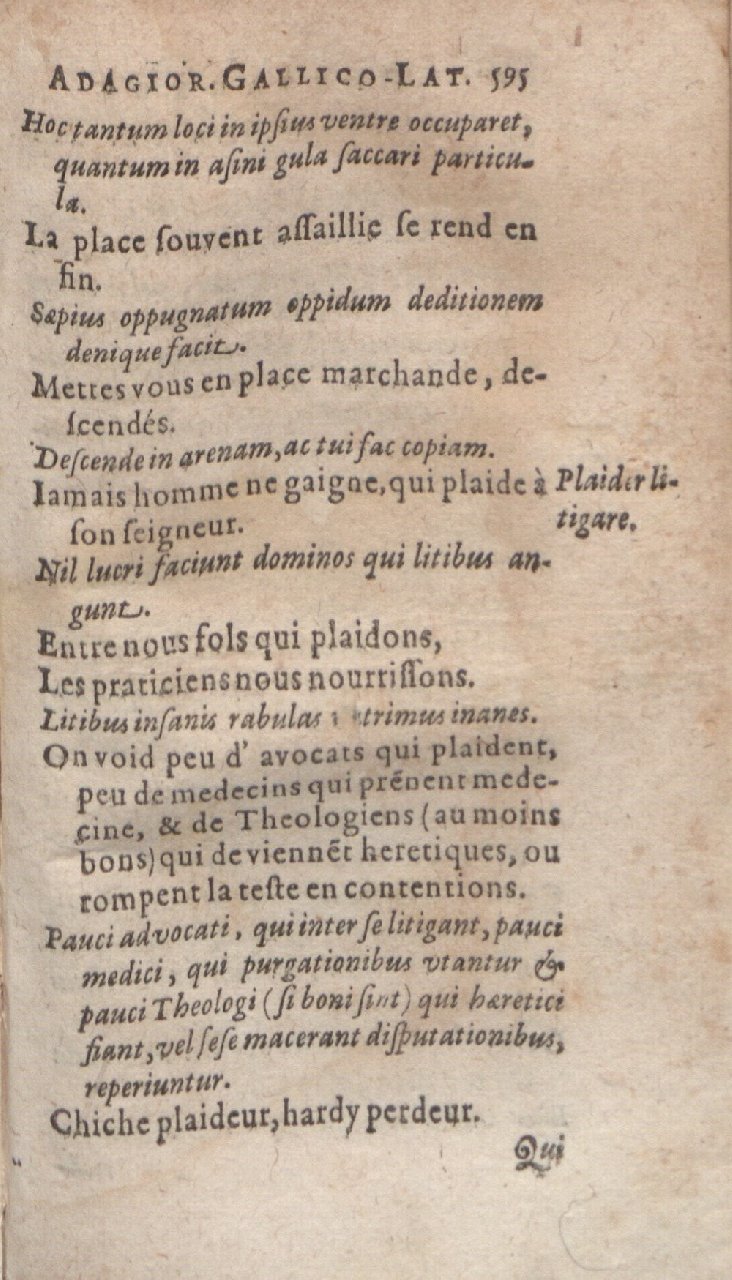 ADAGIOR. GALLICO-LAT. 595
Hoc tantum loci in ipſius ventre occuparet,
quantum in aſini gula ſaccari particu-
la.
La place ſouvent aſſaillie ſe rend en
fin.
Sæpius oppugnatum oppidum deditionem
denique facit.
Mettes vous en place marchande, de-
ſcendés.
Deſcende in arenam, ac tui fac copiam.
Iamais homme ne gaigne, qui plaide à
ſon ſeigneur.
Plaider li-
tigare.
Nil lucri faciunt dominos qui litibus an-
gunt.
Entre nous fols qui plaidons,
Les praticiens nous nourriſſons.
Litibus inſanis rabulas inanes.
On void peu d' avocats qui plaident,
peu de medecins qui prēnent mede-
cine, & de Theologiens (au moins
bons) qui deviennēt heretiques, ou
rompent la teſte en contentions.
Pauci advocati, qui inter ſe litigant, pauci
medici, qui purgationibus vtantur &
pauci Theologi (ſi boni ſint) qui hæretici
fiant, vel ſeſe macerant diſputationibus,
reperiuntur.
Chiche plaideur, hardy perdeur.
Qui